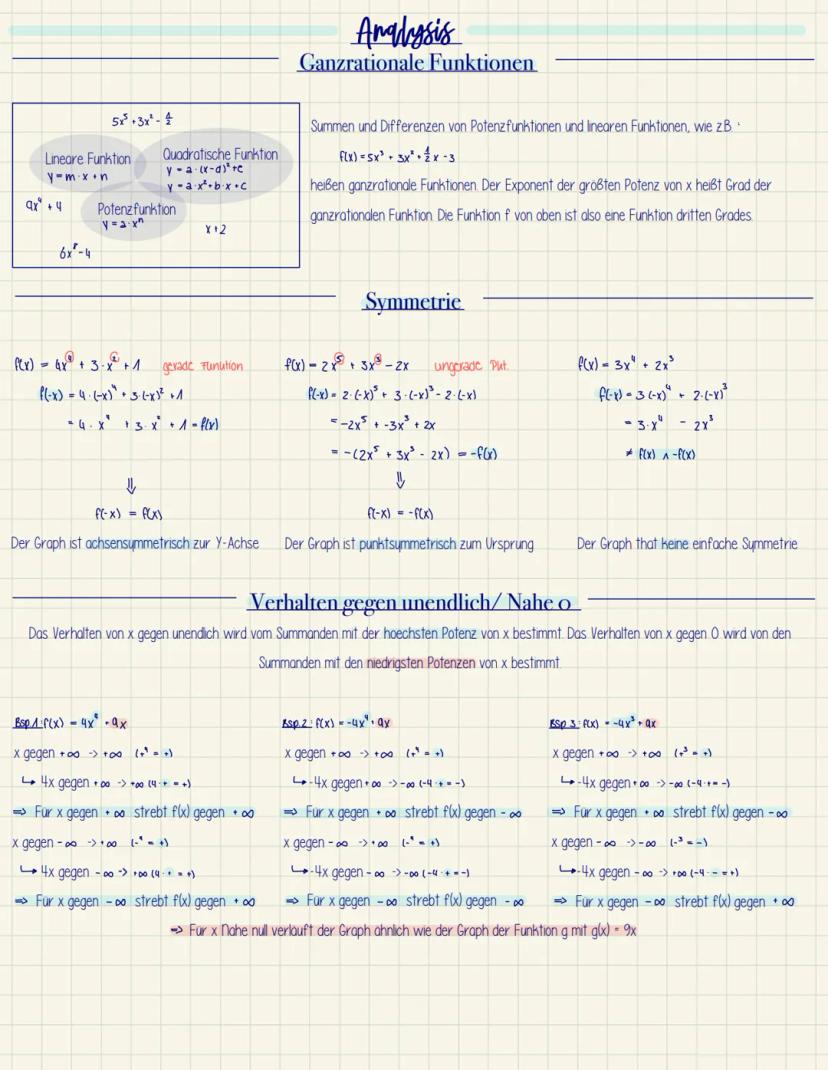 Analysis
Ganzrationale Funktionen
5x⁵ + 3x² - 1/2
Lineare Funktion
y = m·x + n
Quadratische Funktion
y = a·(x-d)² + e
y = a·x² + b·x + c
9x⁴ + 4
Potenzfunktion
y = a·xⁿ
x + 2
6x⁸ - 4
Summen und Differenzen von Potenzfunktionen und linearen Funktionen, wie z.B.
f(x) = 5x³ + 3x² + 1/2 x - 3
heißen ganzrationale Funktionen. Der Exponent der größten Potenz von x heißt Grad der
ganzrationalen Funktion. Die Funktion f von oben ist also eine Funktion dritten Grades.
Symmetrie
f(x) = 4x⁴ + 3·x² + 1 gerade Funktion
f(-x) = 4·(-x)⁴ + 3·(-x)² + 1
= 4·x⁴ + 3·x² + 1 = f(x)
⇓
f(-x) = f(x)
Der Graph ist achsensymmetrisch zur Y-Achse
f(x) = 2x⁵ + 3x³ - 2x ungerade Put.
f(-x) = 2·(-x)⁵ + 3·(-x)³ - 2·(-x)
= -2x⁵ + -3x³ + 2x
= -(2x⁵ + 3x³ - 2x) = -f(x)
⇓
f(-x) = -f(x)
Der Graph ist punktsymmetrisch zum Ursprung
f(x) = 3x⁴ + 2x³
f(-x) = 3(-x)⁴ + 2·(-x)³
= 3·x⁴ - 2x³
≠ f(x) ∧ -f(x)
Der Graph that keine einfache Symmetrie
Verhalten gegen unendlich/ Nahe 0
Das Verhalten von x gegen unendlich wird vom Summanden mit der hoechsten Potenz von x bestimmt. Das Verhalten von x gegen 0 wird von den
Summanden mit den niedrigsten Potenzen von x bestimmt.
Bsp.1: f(x) = 4x⁴ + 9x
x gegen +∞ -> +∞ (+⁴ = +)
↳ 4x gegen +∞ -> +∞ (4·+ = +)
⇒ Für x gegen +∞ strebt f(x) gegen +∞
x gegen -∞ -> +∞ (-⁴ = +)
↳ 4x gegen -∞ -> +∞ (4·+ = +)
⇒ Für x gegen -∞ strebt f(x) gegen +∞
Bsp.2: f(x) = -4x⁴ + 9x
x gegen +∞ -> +∞ (+⁴ = +)
↳ -4x gegen +∞ -> -∞ (-4·+ = -)
⇒ Für x gegen +∞ strebt f(x) gegen -∞
x gegen -∞ -> +∞ (-⁴ = +)
↳ -4x gegen -∞ -> -∞ (-4·+ = -)
⇒ Für x gegen -∞ strebt f(x) gegen -∞
Bsp 3: f(x) = -4x³ + 9x
x gegen +∞ -> +∞ (+³ = +)
↳ -4x gegen +∞ -> -∞ (-4·+ = -)
⇒ Für x gegen +∞ strebt f(x) gegen -∞
x gegen -∞ -> -∞ (-³ = -)
↳ -4x gegen -∞ -> +∞ (-4·- = +)
⇒ Für x gegen -∞ strebt f(x) gegen +∞
⇒ Für x Nahe null verläuft der Graph ähnlich wie der Graph der Funktion g mit g(x) = 9x